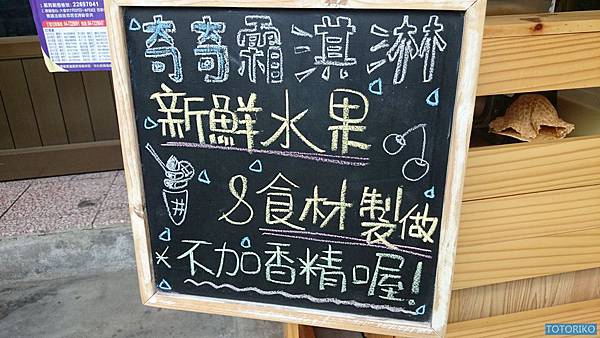 奇奇霜淇淋
新鮮水果
&食材製做
*不加香精喔!
22697041
TOTORIKO